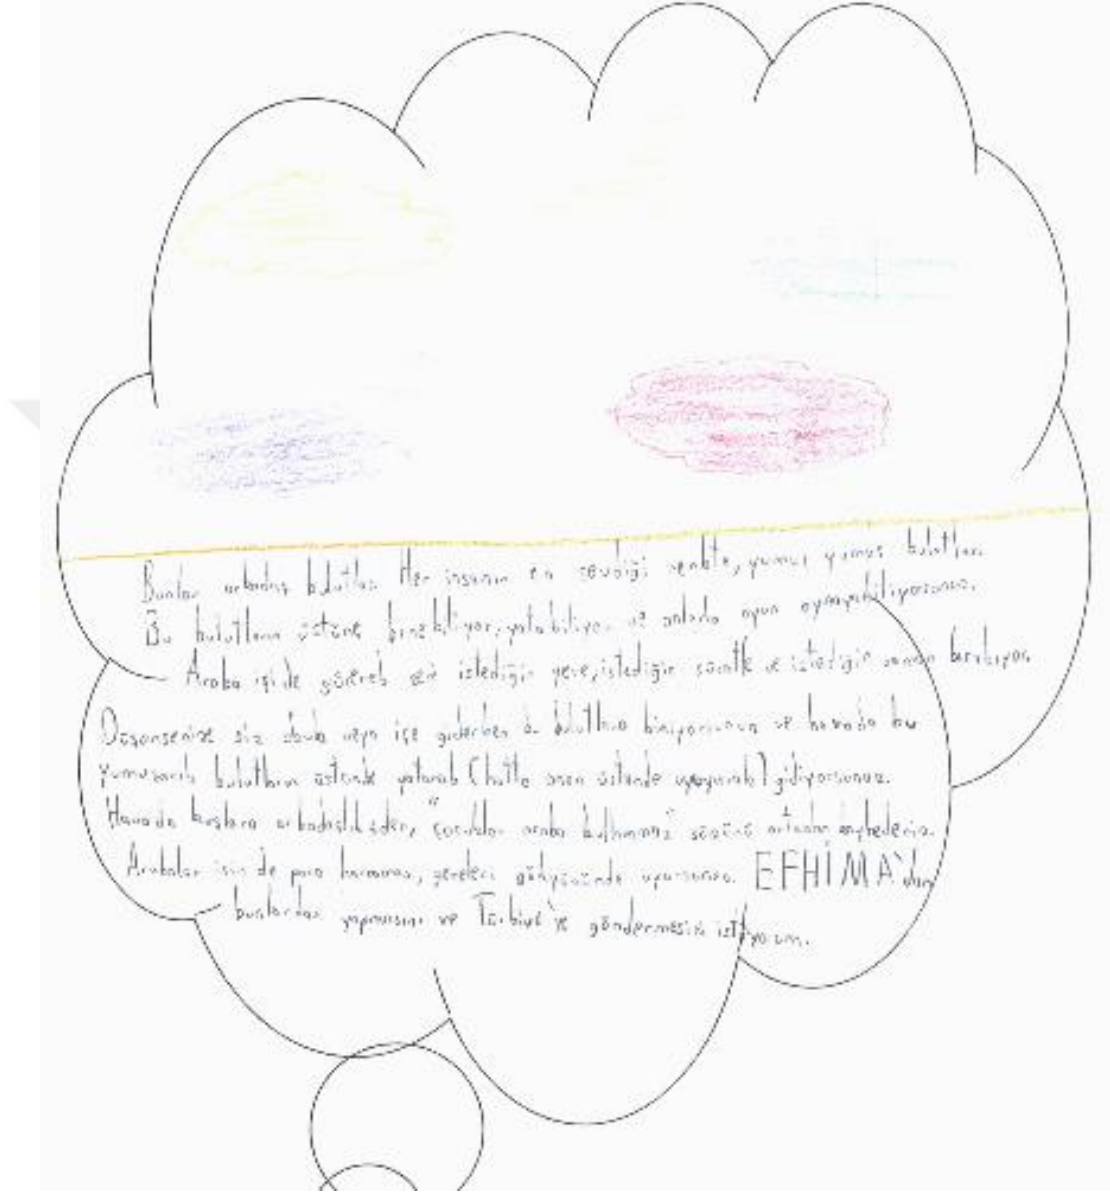 Bunlar arkadaş bulutlar. Her insanın en sevdiği renkte, yumuş yumuş bulutlar.
Bu bulutların üstüne binebiliyor, yatabiliyor ve onlarla oyun oynayabiliyorsunuz.
Araba işi de görerek sizi istediğin yere, istediğin süratle ve istediğin zaman bırakıyor.
Düşünsenize siz okula veya işe giderken bu bulutlara biniyorsunuz ve havada bu
yumuşacık bulutların üstünde yatarak (hatta onun üstünde uyuyarak) gidiyorsunuz.
Havada kuşlara arkadaşlık eder, "çocuklar araba kullanamaz" sözünü ortadan kaybederiz.
Arabalar için de para harcamaz, çevreleri gökyüzünde uyursunuz. EFHİMA'dan
bunlardan yapmasını ve Türkiye'ye göndermesini istiyorum.